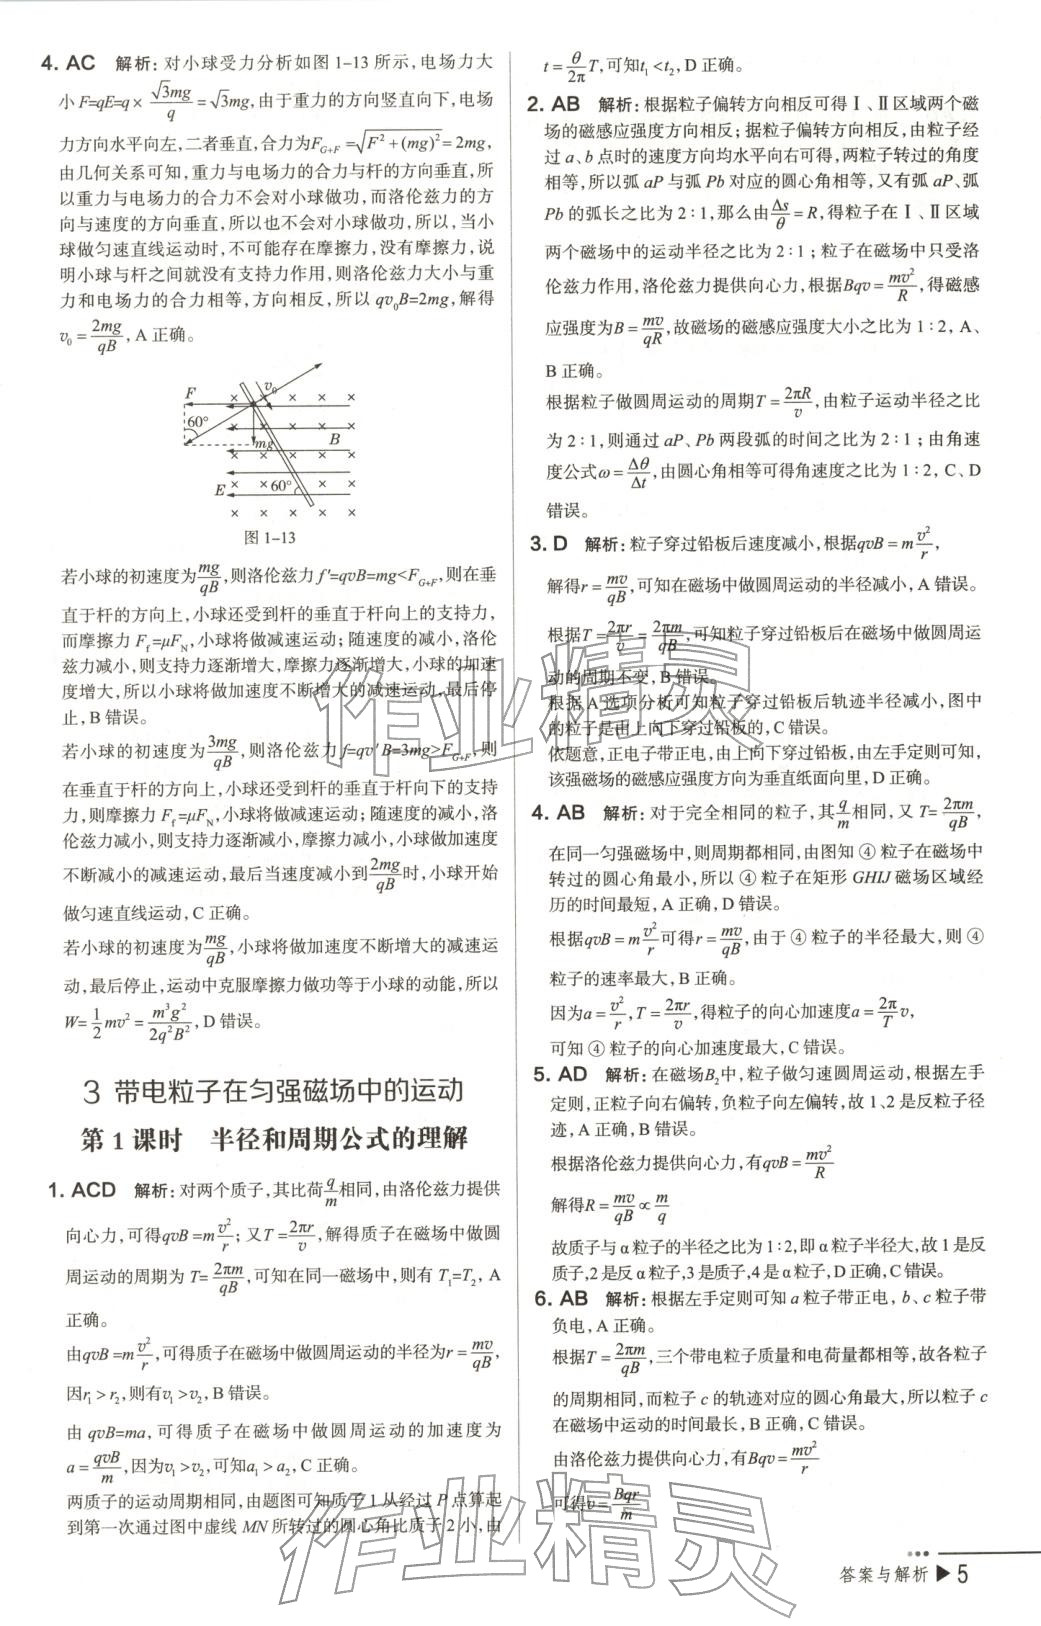 4. AC 解析:对小球受力分析如图1-13所示,电场力大
小F=qE=q×√3mg/q=√3mg,由于重力的方向竖直向下,电场
力方向水平向左,二者垂直,合力为F_{G+F}=√(F²+(mg)²)=2mg,
由几何关系可知,重力与电场力的合力与杆的方向垂直,所
以重力与电场力的合力不会对小球做功,而洛伦兹力的方
向与速度的方向垂直,所以也不会对小球做功,所以,当小
球做匀速直线运动时,不可能存在摩擦力,没有摩擦力,说
明小球与杆之间就没有支持力作用,则洛伦兹力大小与重
力和电场力的合力相等,方向相反,所以 qv₀B=2mg,解得
v₀=2mg/qB,A正确。
F
v₀
60°
mg
B
E
60°
图1-13
若小球的初速度为mg/qB,则洛伦兹力f′=qvB=mg<F_{G+F},则在垂
直于杆的方向上,小球还受到杆的垂直于杆向上的支持力,
而摩擦力F_f=μF_N,小球将做减速运动;随速度的减小,洛伦
兹力减小,则支持力逐渐增大,摩擦力逐渐增大,小球的加速
度增大,所以小球将做加速度不断增大的减速运动,最后停
止,B错误。
若小球的初速度为3mg/qB,则洛伦兹力f=qv′B=3mg>F_{G+F},则
在垂直于杆的方向上,小球还受到垂直于杆向下的支持
力,则摩擦力F_f=μF_N,小球将做减速运动;随速度的减小,洛
伦兹力减小,则支持力逐渐减小,摩擦力减小,小球做加速度
不断减小的减速运动,最后当速度减小到2mg/qB时,小球开始
做匀速直线运动,C正确。
若小球的初速度为mg/qB,小球将做加速度不断增大的减速运
动,最后停止,运动中克服摩擦力做功等于小球的动能,所以
W=1/2mv²=m³g²/2q²B²,D错误。
3 带电粒子在匀强磁场中的运动
第1课时 半径和周期公式的理解
1. ACD 解析:对两个质子,其比荷q/m相同,由洛伦兹力提供
向心力,可得qvB=mv²/r;又T=2πr/v,解得质子在磁场中做圆
周运动的周期为T=2πm/qB,可知在同一磁场中,则有T₁=T₂,A
正确。
由qvB=mv²/r,可得质子在磁场中做圆周运动的半径为r=mv/qB,
因r₁>r₂,则有v₁>v₂,B错误。
由qvB=ma,可得质子在磁场中做圆周运动的加速度为
a=qvB/m,因为v₁>v₂,可知a₁>a₂,C正确。
两质子的运动周期相同,由题图可知质子1从经过P点算起
到第一次通过图中虚线MN所转过的圆心角比质子2小,由
t=θ/2πT,可知t₁<t₂,D正确。
2. AB 解析:根据粒子偏转方向相反可得Ⅰ、Ⅱ区域两个磁
场的磁感应强度方向相反;据粒子偏转方向相反,由粒子经
过a、b点时的速度方向均水平向右可得,两粒子转过的角度
相等,所以弧aP与弧Pb对应的圆心角相等,又有弧aP、弧
Pb的弧长之比为2:1,那么由Δs/θ=R,得粒子在Ⅰ、Ⅱ区域
两个磁场中的运动半径之比为2:1;粒子在磁场中只受洛
伦兹力作用,洛伦兹力提供向心力,根据Bqv=mv²/R,得磁感
应强度为B=mv/qR,故磁场的磁感应强度大小之比为1:2,A、
B正确。
根据粒子做圆周运动的周期T=2πR/v,由粒子运动半径之比
为2:1,则通过aP、Pb两段弧的时间之比为2:1;由角速
度公式ω=Δθ/Δt,由圆心角相等可得角速度之比为1:2,C、D
错误。
3. D 解析:粒子穿过铅板后速度减小,根据qvB=mv²/r,
解得r=mv/qB,可知在磁场中做圆周运动的半径减小,A错误。
根据T=2πr/v=2πm/qB,可知粒子穿过铅板后在磁场中做圆周运
动的周期不变,B错误。
根据A选项分析可知粒子穿过铅板后轨迹半径减小,图中
的粒子是由上向下穿过铅板的,C错误。
依题意,正电子带正电,由上向下穿过铅板,由左手定则可知,
该强磁场的磁感应强度方向为垂直纸面向里,D正确。
4. AB 解析:对于完全相同的粒子,其q/m相同,又T=2πm/qB,
在同一匀强磁场中,则周期都相同,由图知④粒子在磁场中
转过的圆心角最小,所以④粒子在矩形GHIJ磁场区域经
历的时间最短,A正确,D错误。
根据qvB=mv²/r可得r=mv/qB,由于④粒子的半径最大,则④
粒子的速率最大,B正确。
因为a=v²/r,T=2πr/v,得粒子的向心加速度a=2π/Tv,
可知④粒子的向心加速度最大,C错误。
5. AD 解析:在磁场B₂中,粒子做匀速圆周运动,根据左手
定则,正粒子向右偏转,负粒子向左偏转,故1、2是反粒子径
迹,A正确,B错误。
根据洛伦兹力提供向心力,有qvB=mv²/R
解得R=mv/qB∝m/q
故质子与α粒子的半径之比为1:2,即α粒子半径大,故1是反
质子,2是反α粒子,3是质子,4是α粒子,D正确,C错误。
6. AB 解析:根据左手定则可知a粒子带正电,b、c粒子带
负电,A正确。
根据T=2πm/qB,三个带电粒子质量和电荷量都相等,故各粒子
的周期相同,而粒子c的轨迹对应的圆心角最大,所以粒子c
在磁场中运动的时间最长,B正确,C错误。
由洛伦兹力提供向心力,有Bqv=mv²/r
可得v=Bqr/m
答案与解析 ▶ 5
作业精灵
作业精灵